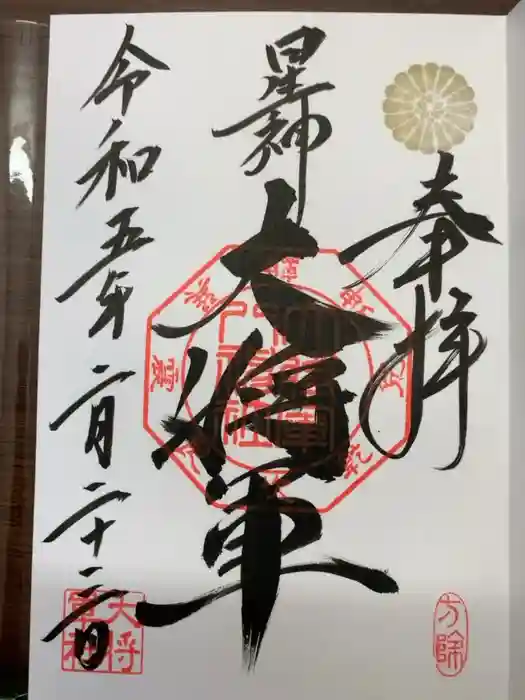 奉拝
星神
大将軍
令和五年二月二十三日
方除
大将
軍社